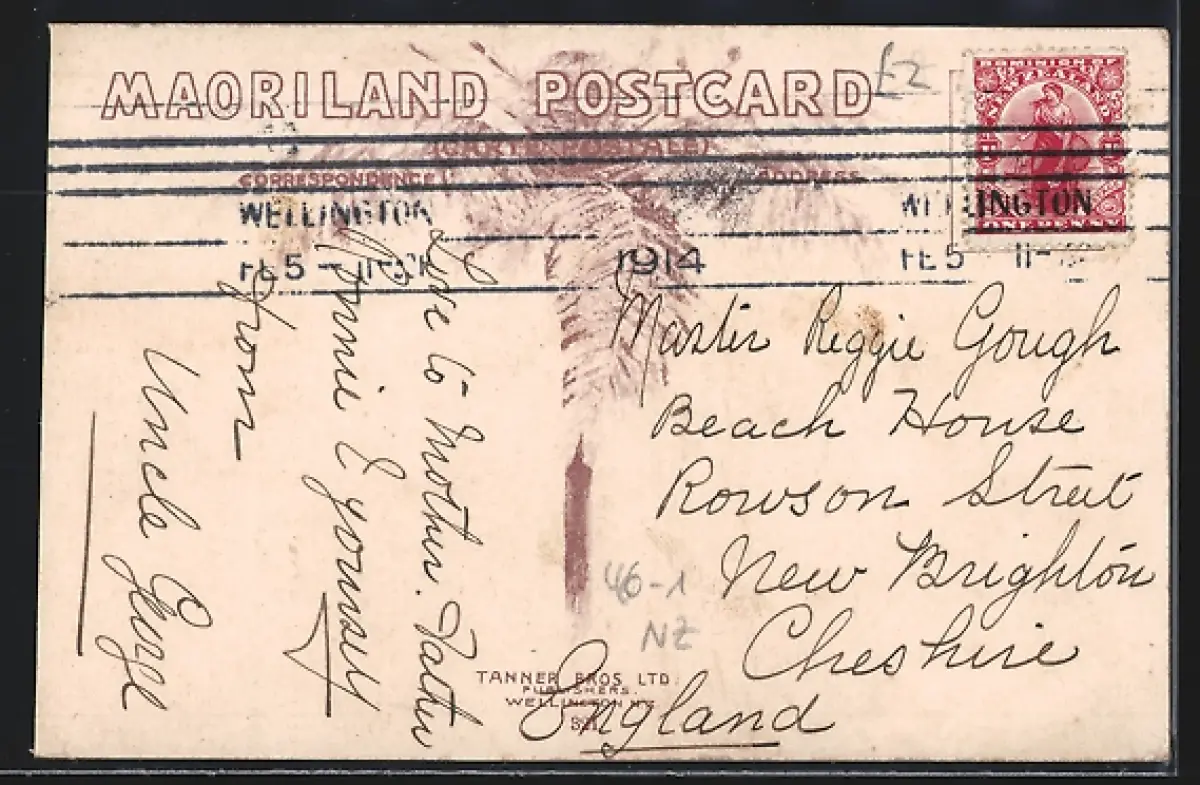 MAORILAND POSTCARD
£2
(CARTE POSTALE)
CORRESPONDENCE
ADDRESS
DOMINION OF
ZEALAND
ONE PENNY
WELLINGTON
FE 5
1914
WELLINGTON
FE 5 11-
Love to Mother. Father
& yourself
from
Uncle George
Master Reggie Gough
Beach House
Rowson Street
New Brighton
Cheshire
England
46-1
NZ
TANNER BROS LTD.
PUBLISHERS.
WELLINGTON N.Z.